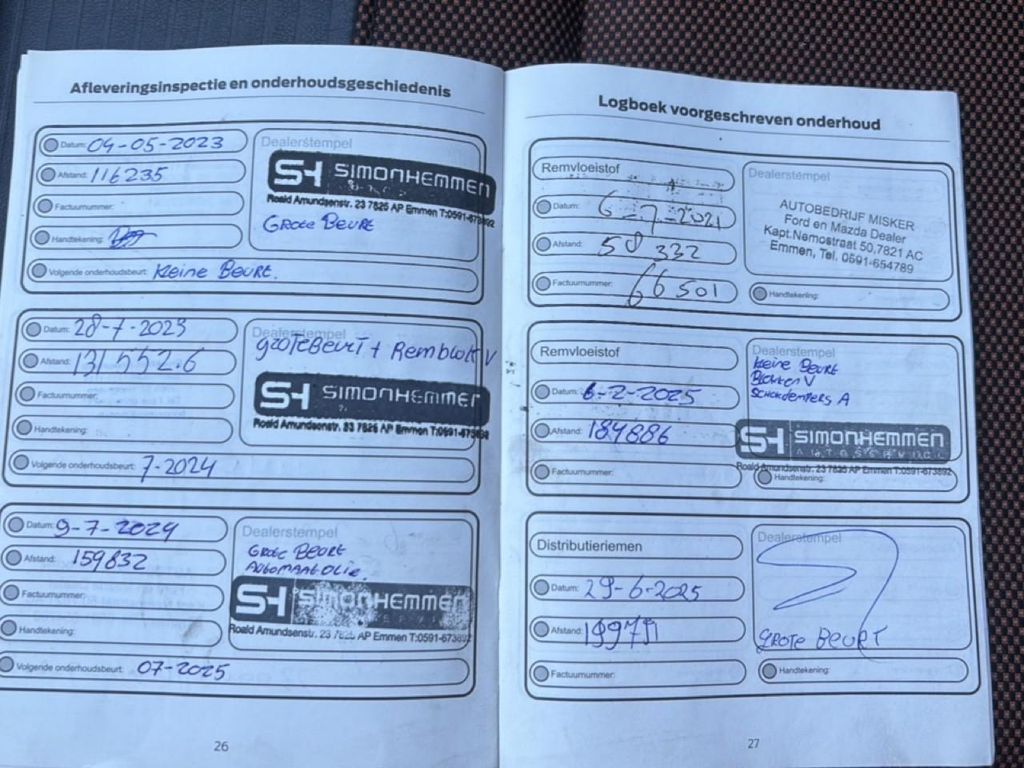 Afleveringsinspectie en onderhoudsgeschiedenis
Datum: 04-05-2023
Afstand: 116235
Factuurnummer:
Handtekening:
Volgende onderhoudsbeurt: Kleine Beurt.
Dealerstempel
SH SIMONHEMMEN
Roald Amundsenstr. 23 7825 AP Emmen T:0591-673892
Grote Beurt
Datum: 28-7-2023
Afstand: 131552.6
Factuurnummer:
Handtekening:
Volgende onderhoudsbeurt: 7-2024
Dealerstempel
SH SIMONHEMMEN
Roald Amundsenstr. 23 7825 AP Emmen T:0591-673892
Datum: 9-7-2024
Afstand: 159832
Factuurnummer:
Handtekening:
Volgende onderhoudsbeurt: 07-2025
Dealerstempel
Grote Beurt
Automaatolie.
SH SIMONHEMMEN
Roald Amundsenstr. 23 7825 AP Emmen T:0591-673892
26
Logboek voorgeschreven onderhoud
Remvloeistof
Datum: 6-7-2021
Afstand: 58332
Factuurnummer: 66501
Dealerstempel
AUTOBEDRIJF MISKER
Ford en Mazda Dealer
Kapt.Nemostraat 50,7821 AC
Emmen, Tel. 0591-654789
Handtekening:
Remvloeistof
Datum: 6-2-2025
Afstand: 184886
Factuurnummer:
Dealerstempel
Kleine Beurt
V
Schokdempers A
SH SIMONHEMMEN
AUTOSERVICE
Roald Amundsenstr. 23 7825 AP Emmen T:0591-673892
Handtekening:
Distributieriemen
Datum: 29-6-2025
Afstand:
Factuurnummer:
Dealerstempel
Grote Beurt
Handtekening:
27